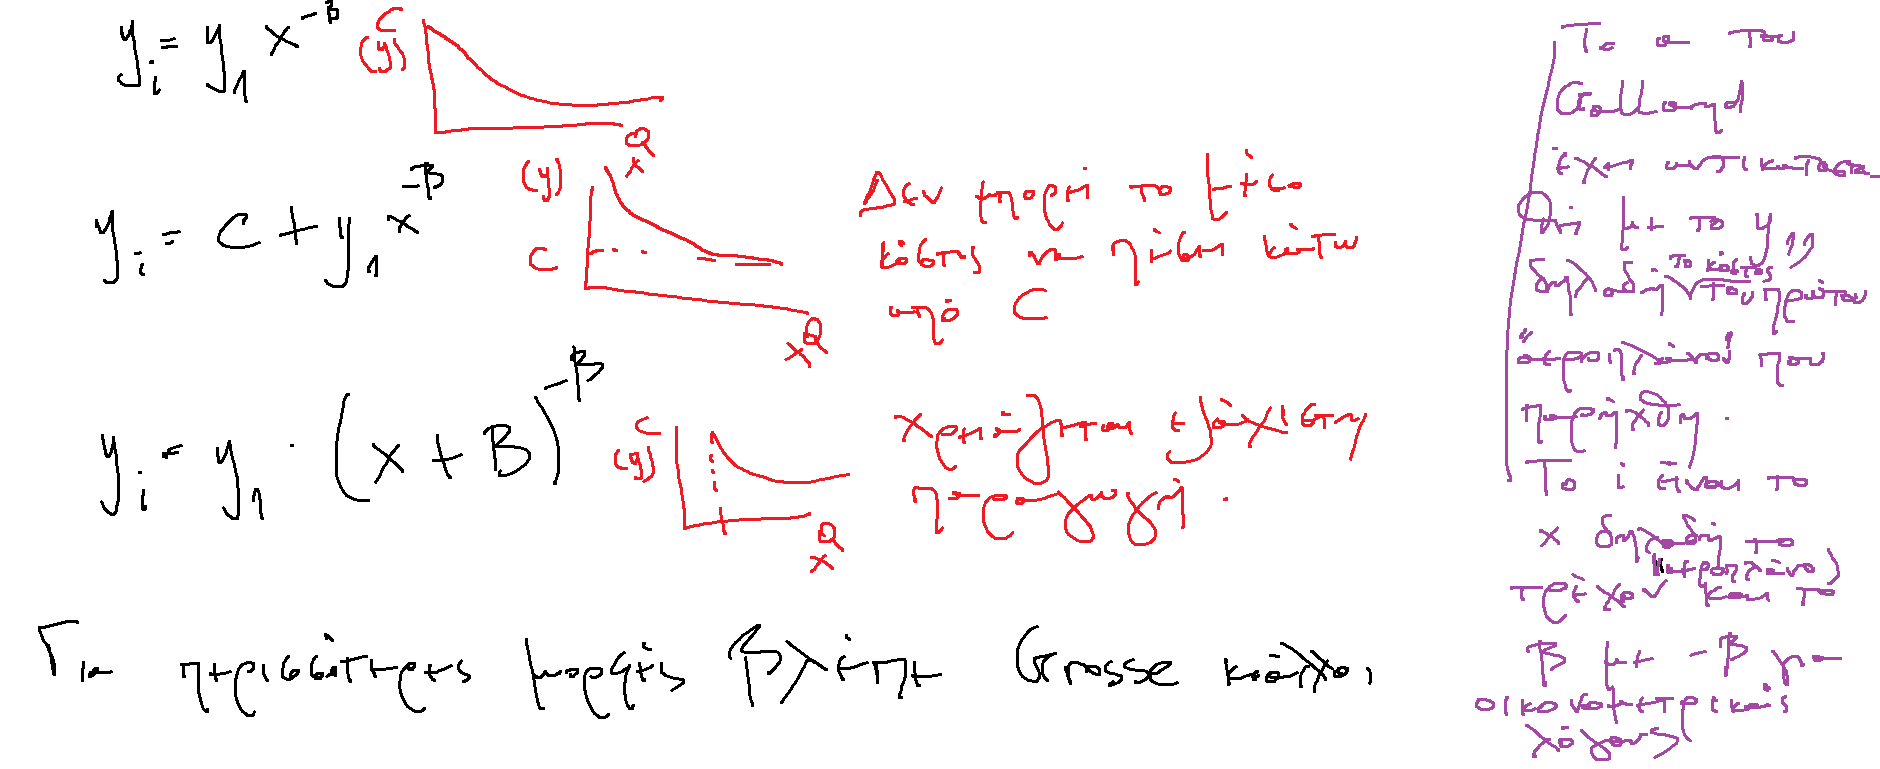 y_i = y_1 x^{-β}
C
(y)
Q
x
y_i = C + y_1 x^{-β}
(y)
C
Q
x
Δεν μπορεί το μέσο
κόστος να πέσει κάτω
από C
y_i = y_1 · (x + B)^{-β}
C
(y)
Q
x
χρειάζεται ελάχιστη
παραγωγή.
Για περισσότερες μορφές βλέπε Grosse και άλλοι
Το α του
Galland
έχει αντικαταστα
θεί με το y_1,
δηλαδή το κόστος του πρώτου
"αεροπλάνου" που
παρήχθη.
Το i είναι το
x δηλαδή το
τρέχον (αεροπλάνο) και το
β με -β για
οικονομετρικούς
λόγους